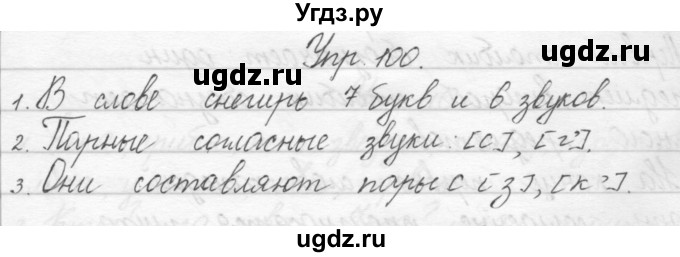 Угдз.ру
Упр. 100.
1. В слове снегирь 7 букв и 6 звуков.
2. Парные согласные звуки: [с], [г'].
3. Они составляют пары с [з], [к'].
ugdz.ru
ugdz.ru
ugdz.ru
ugdz.ru
ugdz.ru
ugdz.ru